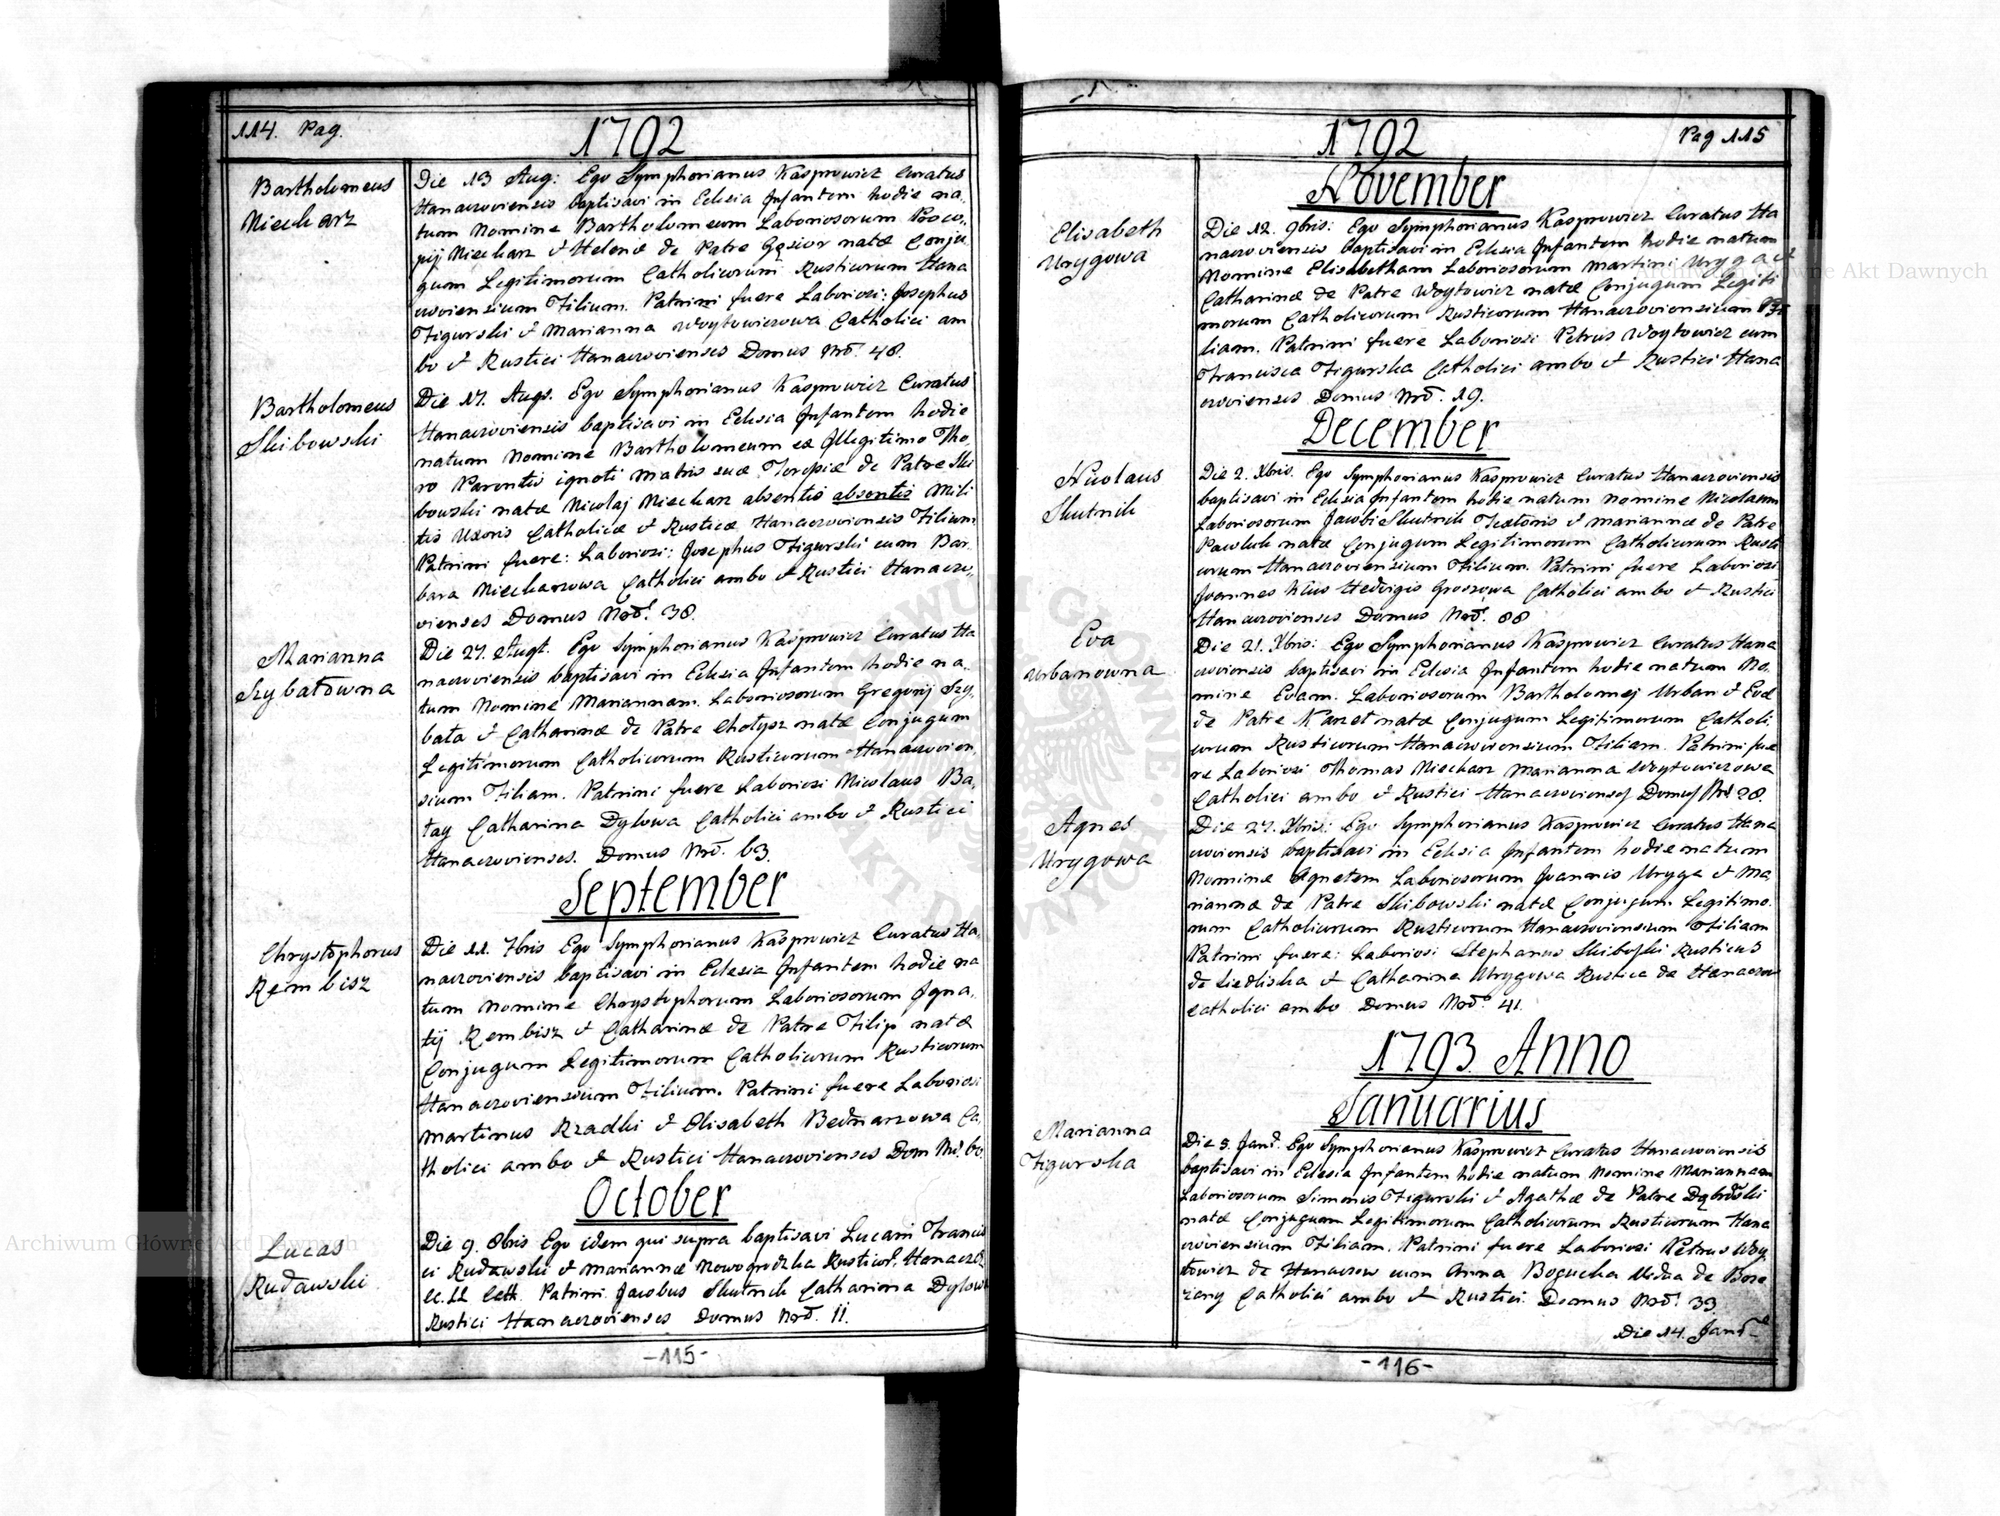 114. Pag.
1792
Bartholomeus
Miecharz
Die 13 Aug: Ego Symphorianus Kasprowicz Curatus
Hanaczoviensis baptisavi in Eclesia Infantem hodie na-
tum Nomine Bartholomeum Laboriosorum Proco-
pij Miecharz & Helenæ de Patre Gęsior natæ Conju-
gum Legitimorum Catholicorum Rusticorum Hana
czoviensium Filium. Patrini fuere Laboriosi: Josephus
Figurski & Marianna Woytowiczowa Catholici am
bo & Rustici Hanaczovienses Domus Nrō. 48.
Bartholomeus
Skibowski
Die 17. Augs. Ego Symphorianus Kasprowicz Curatus
Hanaczoviensis baptisavi in Eclesia Infantem hodie
natum Nomine Bartholomeum ex Illegitimo Tho-
ro Parentis ignoti Matris suæ de Patre Ski
bowski natæ Nicolaj Miecharz absentis absentis Mili
tis Uxoris Catholicæ & Rusticæ Hanaczoviensis Filium
Patrini fuere: Laboriosi: Josephus Figurski cum Bar-
bara Miecharzowa Catholici ambo & Rustici Hanaczo-
vienses Domus Nrō. 38.
Marianna
Szybatowna
Die 27. Augt. Ego Symphorianus Kasprowicz Curatus Ha
naczoviensis baptisavi in Eclesia Infantem hodie na-
tum Nomine Mariannam. Laboriosorum Gregorij Szy-
bata & Catharinæ de Patre Chotysz natæ Conjugum
Legitimorum Catholicorum Rusticorum Hanaczovien-
sium Filiam. Patrini fuere Laboriosi Nicolaus Ba-
tag Catharina Dylowa Catholici ambo & Rustici
Hanaczovienses. Domus Nrō. 63.
September
Chrystophorus
Rembisz
Die 11. 7bris Ego Symphorianus Kasprowicz Curatus Ha-
naczoviensis baptisavi in Eclesia Infantem hodie na
tum Nomine Chrystophorum Laboriosorum Igna-
tij Rembisz & Catharinæ de Patre Filip natæ
Conjugum Legitimorum Catholicorum Rusticorum
Hanaczoviensium Filium. Patrini fuere Laboriosi
Martinus Rzadki & Elisabeth Bednarzowa Ca-
tholici ambo & Rustici Hanaczovienses Dom Nrō. 60.
October
Lucas
Rudawski
Die 9. 8bris Ego idem qui supra baptisavi Lucam Francis
ci Rudawski & Mariannæ Nowogrodzka Rusticor. Hanaczov
cc. LL Cath. Patrini Jacobus Skutnik Catharina Dylowa
Rustici Hanaczovienses Domus Nrō. 11.
-115-
1792
Pag 115
November
Elisabeth
Urygowa
Die 12. 9bris: Ego Symphorianus Kasprowicz Curatus Ha
naczoviensis baptisavi in Eclesia Infantem hodie natum
Nomine Elisabetham Laboriosorum Martini Uryga &
Catharinæ de Patre Woytowicz natæ Conjugum Legiti
morum Catholicorum Rusticorum Hanaczoviensium Fi
liam. Patrini fuere Laboriosi Petrus Woytowicz cum
Francisca Figurska Catholici ambo & Rustici Hana
czovienses Domus Nrō. 19.
December
Nicolaus
Skutnik
Die 2. Xbris. Ego Symphorianus Kasprowicz Curatus Hanaczoviensis
baptisavi in Eclesia Infantem hodie natum Nomine Nicolaum
Laboriosorum Jacobi Skutnik Textoris & Mariannæ de Patre
Pawluk natæ Conjugum Legitimorum Catholicorum Rusti
corum Hanaczoviensium Filium. Patrini fuere Laboriosi
Joannes Kłus Hedvigis Groszowa Catholici ambo & Rustici
Hanaczovienses Domus Nrō. 88
Eva
Urbanowna
Die 21. Xbris: Ego Symphorianus Kasprowicz Curatus Hana
czoviensis baptisavi in Eclesia Infantem hodie natum No-
mine Evam. Laboriosorum Bartholomej Urban & Evæ
de Patre Karzet natæ Conjugum Legitimorum Catholi-
corum Rusticorum Hanaczoviensium Filiam. Patrini fue
re Laboriosi Thomas Miecharz Marianna Woytowiczowa
Catholici ambo & Rustici Hanaczovienses Domus Nrō. 28.
Agnes
Urygowa
Die 27. Xbris: Ego Symphorianus Kasprowicz Curatus Hana
czoviensis baptisavi in Eclesia Infantem hodie natum
Nomine Agnetem Laboriosorum Joannis Uryga & Ma
riannæ de Patre Skibowski natæ Conjugum Legitimo-
rum Catholicorum Rusticorum Hanaczoviensium Filiam
Patrini fuere: Laboriosi Stephanus Skiboski Rusticus
de Siedliska & Catharina Urygowa Rustica de Hanaczow
Catholici ambo Domus Nrō. 41.
1793 Anno
Januarius
Marianna
Figurska
Die 5. Janr̄. Ego Symphorianus Kasprowicz Curatus Hanaczoviensis
baptisavi in Eclesia Infantem hodie natum Nomine Mariannam
Laboriosorum Simonis Figurski & Agathæ de Patre Dąbroski
natæ Conjugum Legitimorum Catholicorum Rusticorum Hana
czoviensium Filiam. Patrini fuere Laboriosi Petrus Woy-
towicz de Hanaczow cum Anna Bogucka Vidua de
Catholici ambo & Rustici. Domus Nrō. 33
Die 14. Janr̄
-116-
Archiwum Główne Akt Dawnych
Archiwum Główne Akt Dawnych
ARCHIWUM GŁÓWNE AKT DAWNYCH